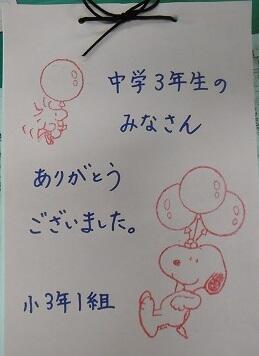 中学3年生の
みなさん
ありがとう
ございました。
小3年1組